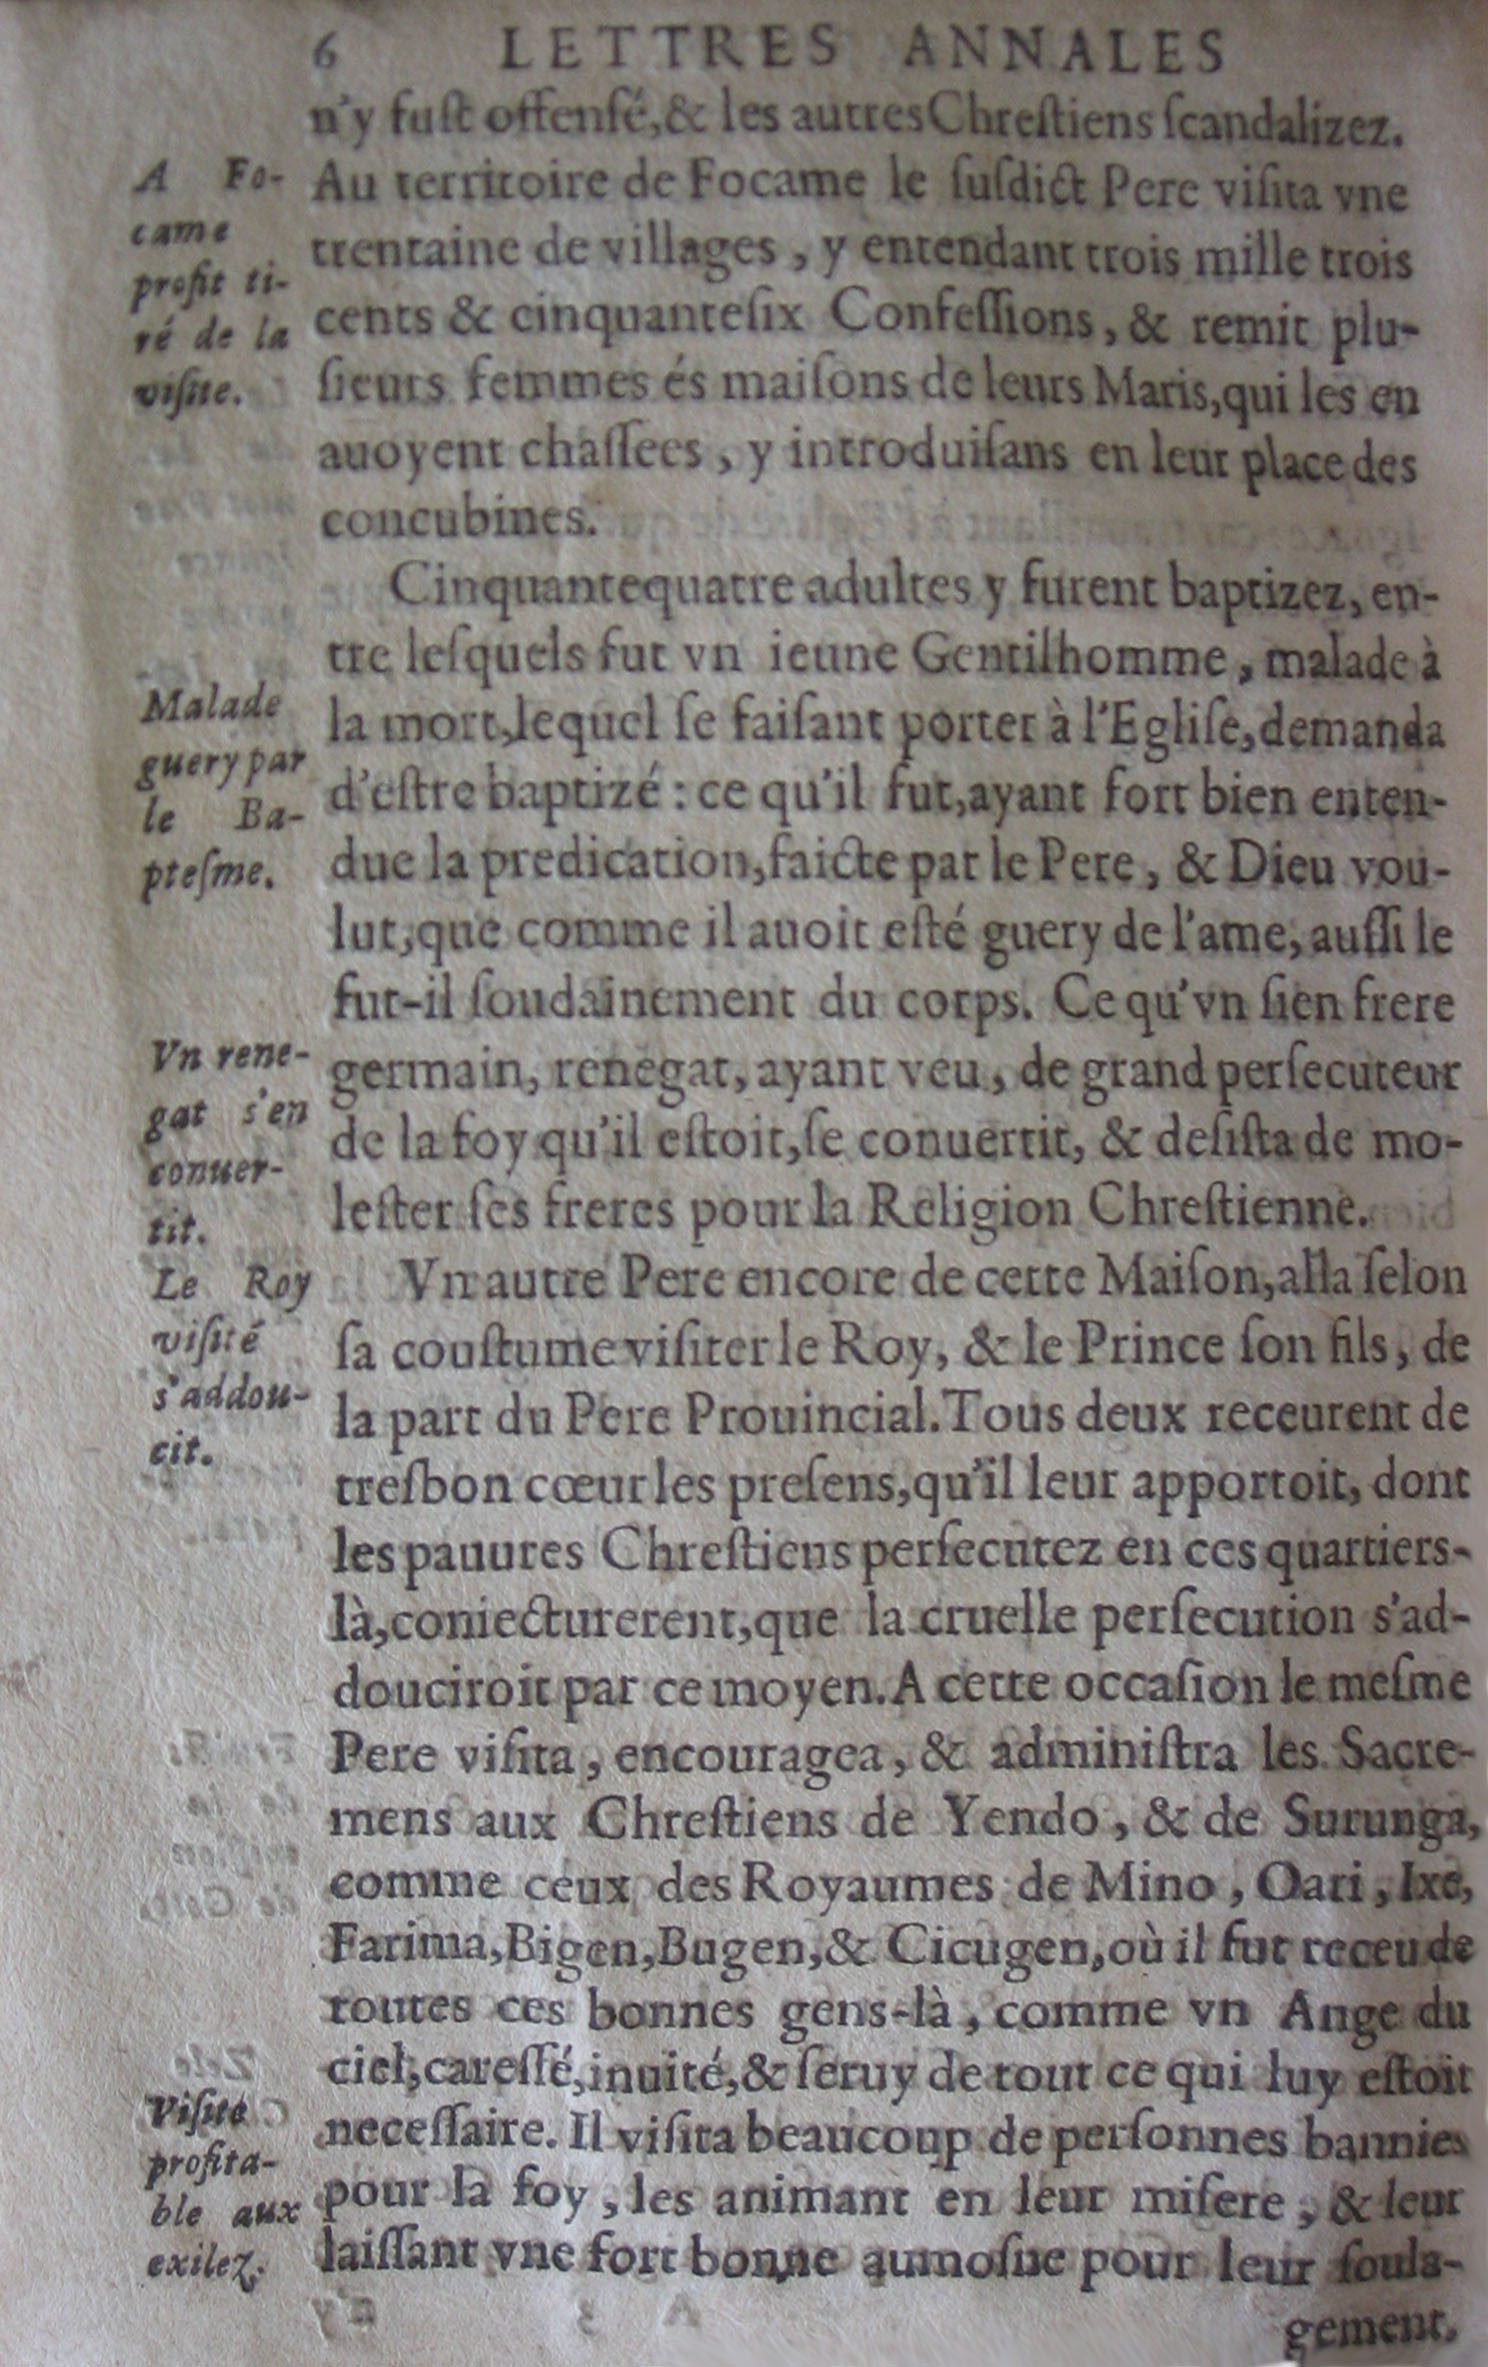 6 LETTRES ANNALES
n'y fuſt offenſé, & les autres Chreſtiens ſcandalizez.
Au territoire de Focame le ſuſdict Pere viſita vne
trentaine de villages, y entendant trois mille trois
cents & cinquanteſix Confeſſions, & remit plu-
ſieurs femmes és maiſons de leurs Maris, qui les en
auoyent chaſſees, y introduiſans en leur place des
concubines.
A Fo-
came
profit ti-
ré de la
viſite.
Cinquantequatre adultes y furent baptizez, en-
tre leſquels fut vn ieune Gentilhomme, malade à
la mort, lequel ſe faiſant porter à l'Egliſe, demanda
d'eſtre baptizé : ce qu'il fut, ayant fort bien enten-
due la predication, faicte par le Pere, & Dieu vou-
lut, que comme il auoit eſté guery de l'ame, auſſi le
fut-il ſoudainement du corps. Ce qu'vn ſien frere
germain, renegat, ayant veu, de grand perſecuteur
de la foy qu'il eſtoit, ſe conuertit, & deſiſta de mo-
leſter ſes freres pour la Religion Chreſtienne.
Malade
guery par
le Ba-
pteſme.
Vn rene-
gat s'en
conuer-
tit.
Vn autre Pere encore de cette Maiſon, alla ſelon
ſa couſtume viſiter le Roy, & le Prince ſon fils, de
la part du Pere Prouincial. Tous deux receurent de
treſbon cœur les preſens, qu'il leur apportoit, dont
les pauures Chreſtiens perſecutez en ces quartiers-
là, coniecturerent, que la cruelle perſecution s'ad-
douciroit par ce moyen. A cette occaſion le meſme
Pere viſita, encouragea, & adminiſtra les Sacre-
mens aux Chreſtiens de Yendo, & de Surunga,
comme ceux des Royaumes de Mino, Oari, Ixe,
Farima, Bigen, Bugen, & Cicugen, où il fut receu de
toutes ces bonnes gens-là, comme vn Ange du
ciel, careſſé, inuité, & ſeruy de tout ce qui luy eſtoit
neceſſaire. Il viſita beaucoup de perſonnes bannies
pour la foy, les animant en leur miſere, & leur
laiſſant vne fort bonne aumoſne pour leur ſoula-
gement.
Le Roy
viſité
s'addou-
cit.
Viſite
profita-
ble aux
exilez.